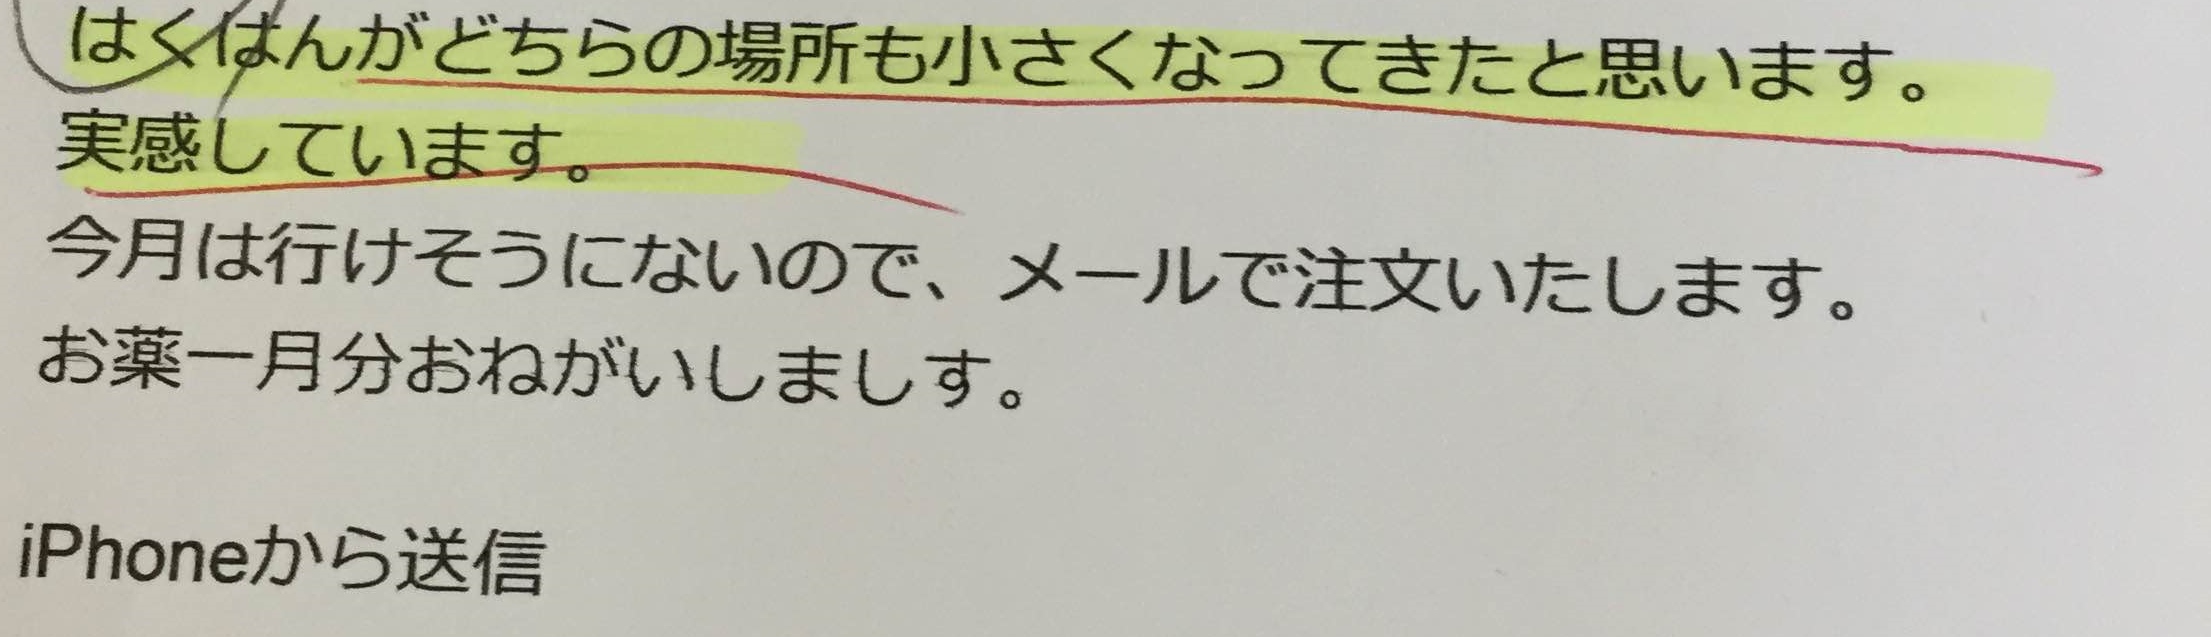 はくはんがどちらの場所も小さくなってきたと思います。
実感しています。
今月は行けそうにないので、メールで注文いたします。
お薬一月分おねがいしましす。
iPhoneから送信